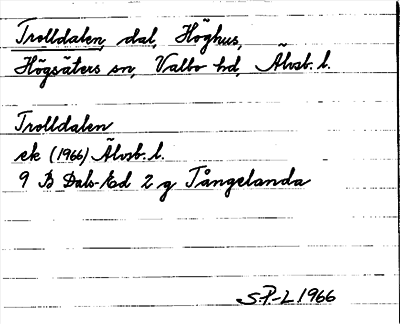 Trolldalen, dal, Höghus,
Högsäters sn, Valbo hd, Älvsb. l.
Trolldalen
ek (1966) Älvsb. l.
9 B Dals-Ed 2 g Tångelanda
S.P-L 1966